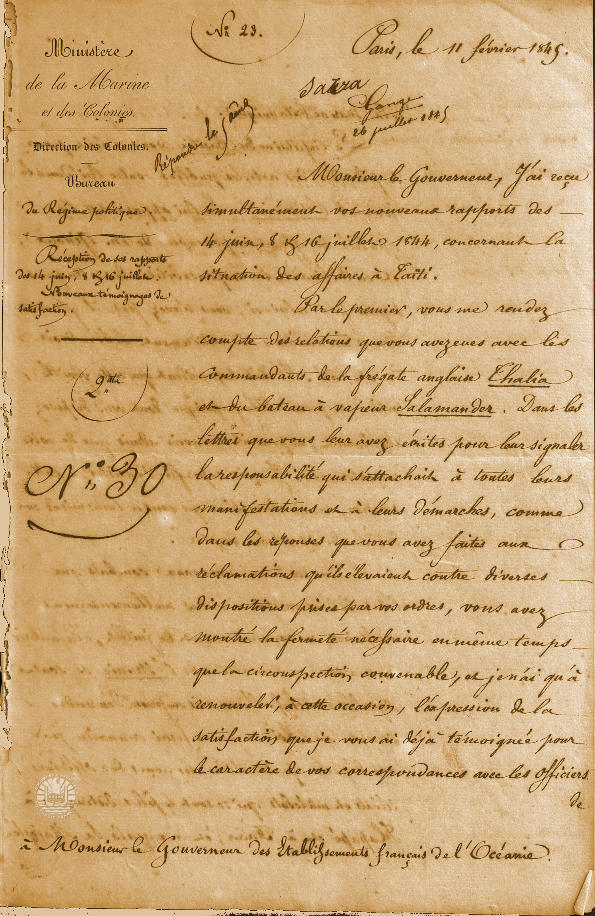 N: 23.
Paris, le 11 février 1845.
Ministère
de la Marine
et des Colonies.
Direction des Colonies.
Bureau
du Régime politique.
Réception de ses rapports
des 14 juin, 8 & 16 juillet.
Nouveaux témoignages de
satisfaction.
2e
N° 30
Répondre le
26 juillet 1845
Monsieur le Gouverneur, J'ai reçu
simultanément vos nouveaux rapports des
14 juin, 8 & 16 juillet 1844, concernant la
situation des affaires à Taïti.
Par le premier, vous me rendez
compte des relations que vous avez eues avec les
commandants de la frégate anglaise Thalia
et du bateau à vapeur Salamander. Dans les
lettres que vous leur avez écrites pour leur signaler
la responsabilité qui s'attachait à toutes leurs
manifestations et à leurs démarches, comme
dans les réponses que vous avez faites aux
réclamations qu'ils élevaient contre diverses
dispositions prises par vos ordres, vous avez
montré la fermeté nécessaire en même temps
que la circonspection convenable, et je n'ai qu'à
renouveler, à cette occasion, l'expression de la
satisfaction que je vous ai déjà témoignée pour
le caractère de vos correspondances avec les officiers
de
à Monsieur le Gouverneur des Etablissements français de l'Océanie.